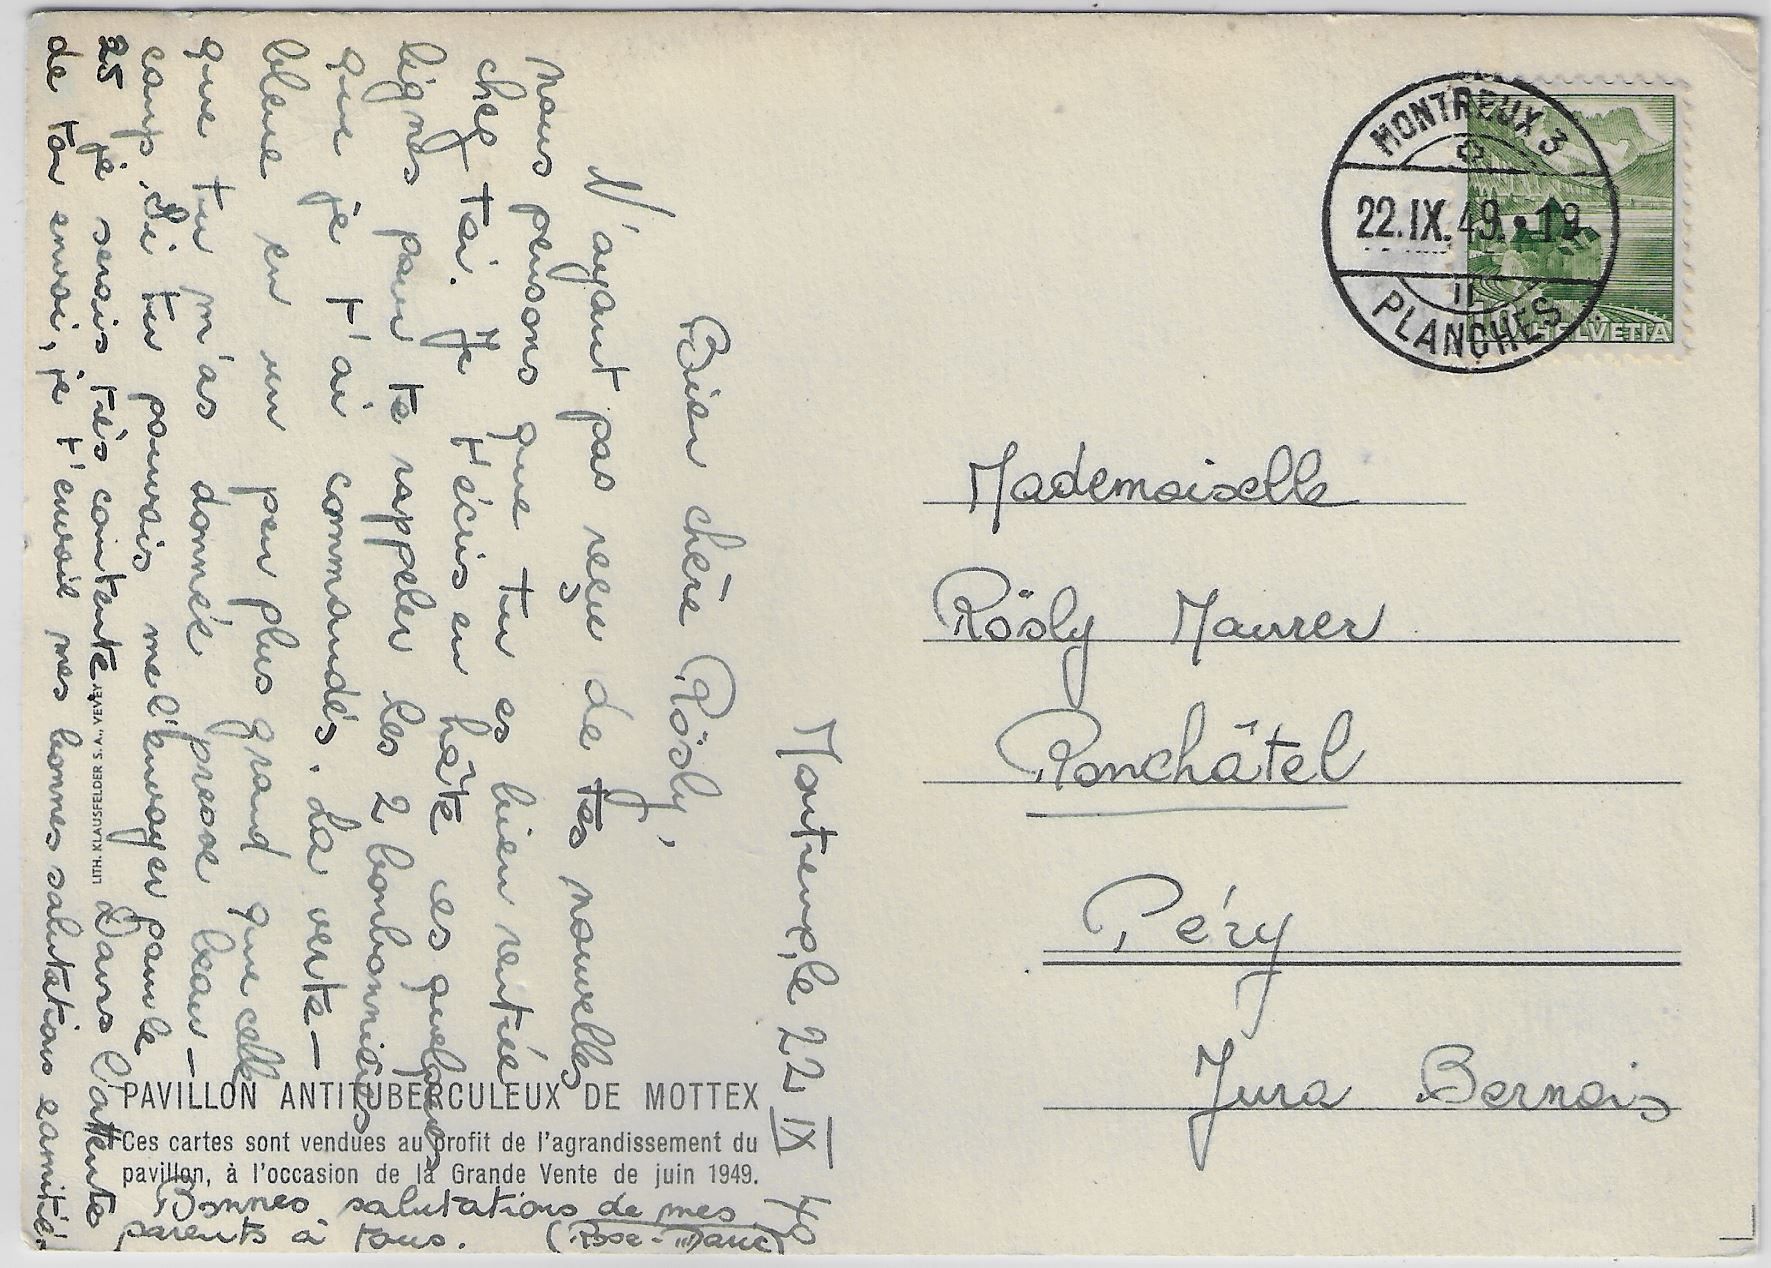 Montreux, le 22 IX 49
Bien chère Rösly,
N'ayant pas reçu de tes nouvelles
nous pensons que tu es bien rentrée
chez toi. Je t'écris en hâte ces quelques
lignes pour te rappeler les 2 bonbonnières
que je t'ai commandés. La verte-
bleue en un peu plus grand que celle
que tu m'as donnée presque beau-
coup. Si tu pouvais me l'envoyer pour le
25 je serais très contente. Dans l'attente
de ton envoi, je t'envoie mes bonnes salutations
Bonnes salutations de mes
parents à tous. (Rose-Marie)
LITH. KLAUSFELDER S.A., VEVEY
PAVILLON ANTITUBERCULEUX DE MOTTEX
Ces cartes sont vendues au profit de l'agrandissement du
pavillon, à l'occasion de la Grande Vente de juin 1949.
MONTREUX 3
22.IX.49.-19
PLANCHES
HELVETIA
Mademoiselle
Rösly Maurer
Ronchâtel
Péry
Jura Bernois